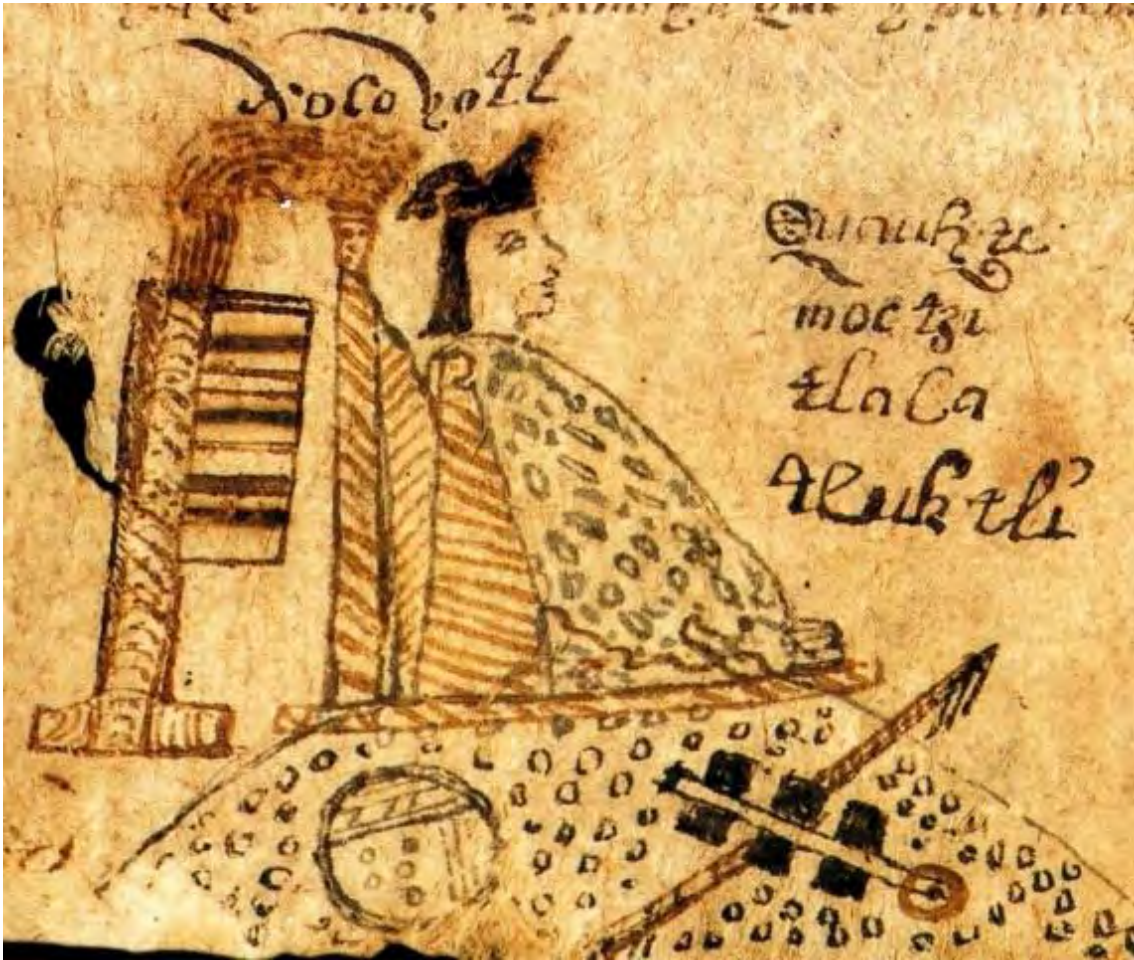 Xoloyotl
Quauhte
moctzi
tlaca
tecuhtli